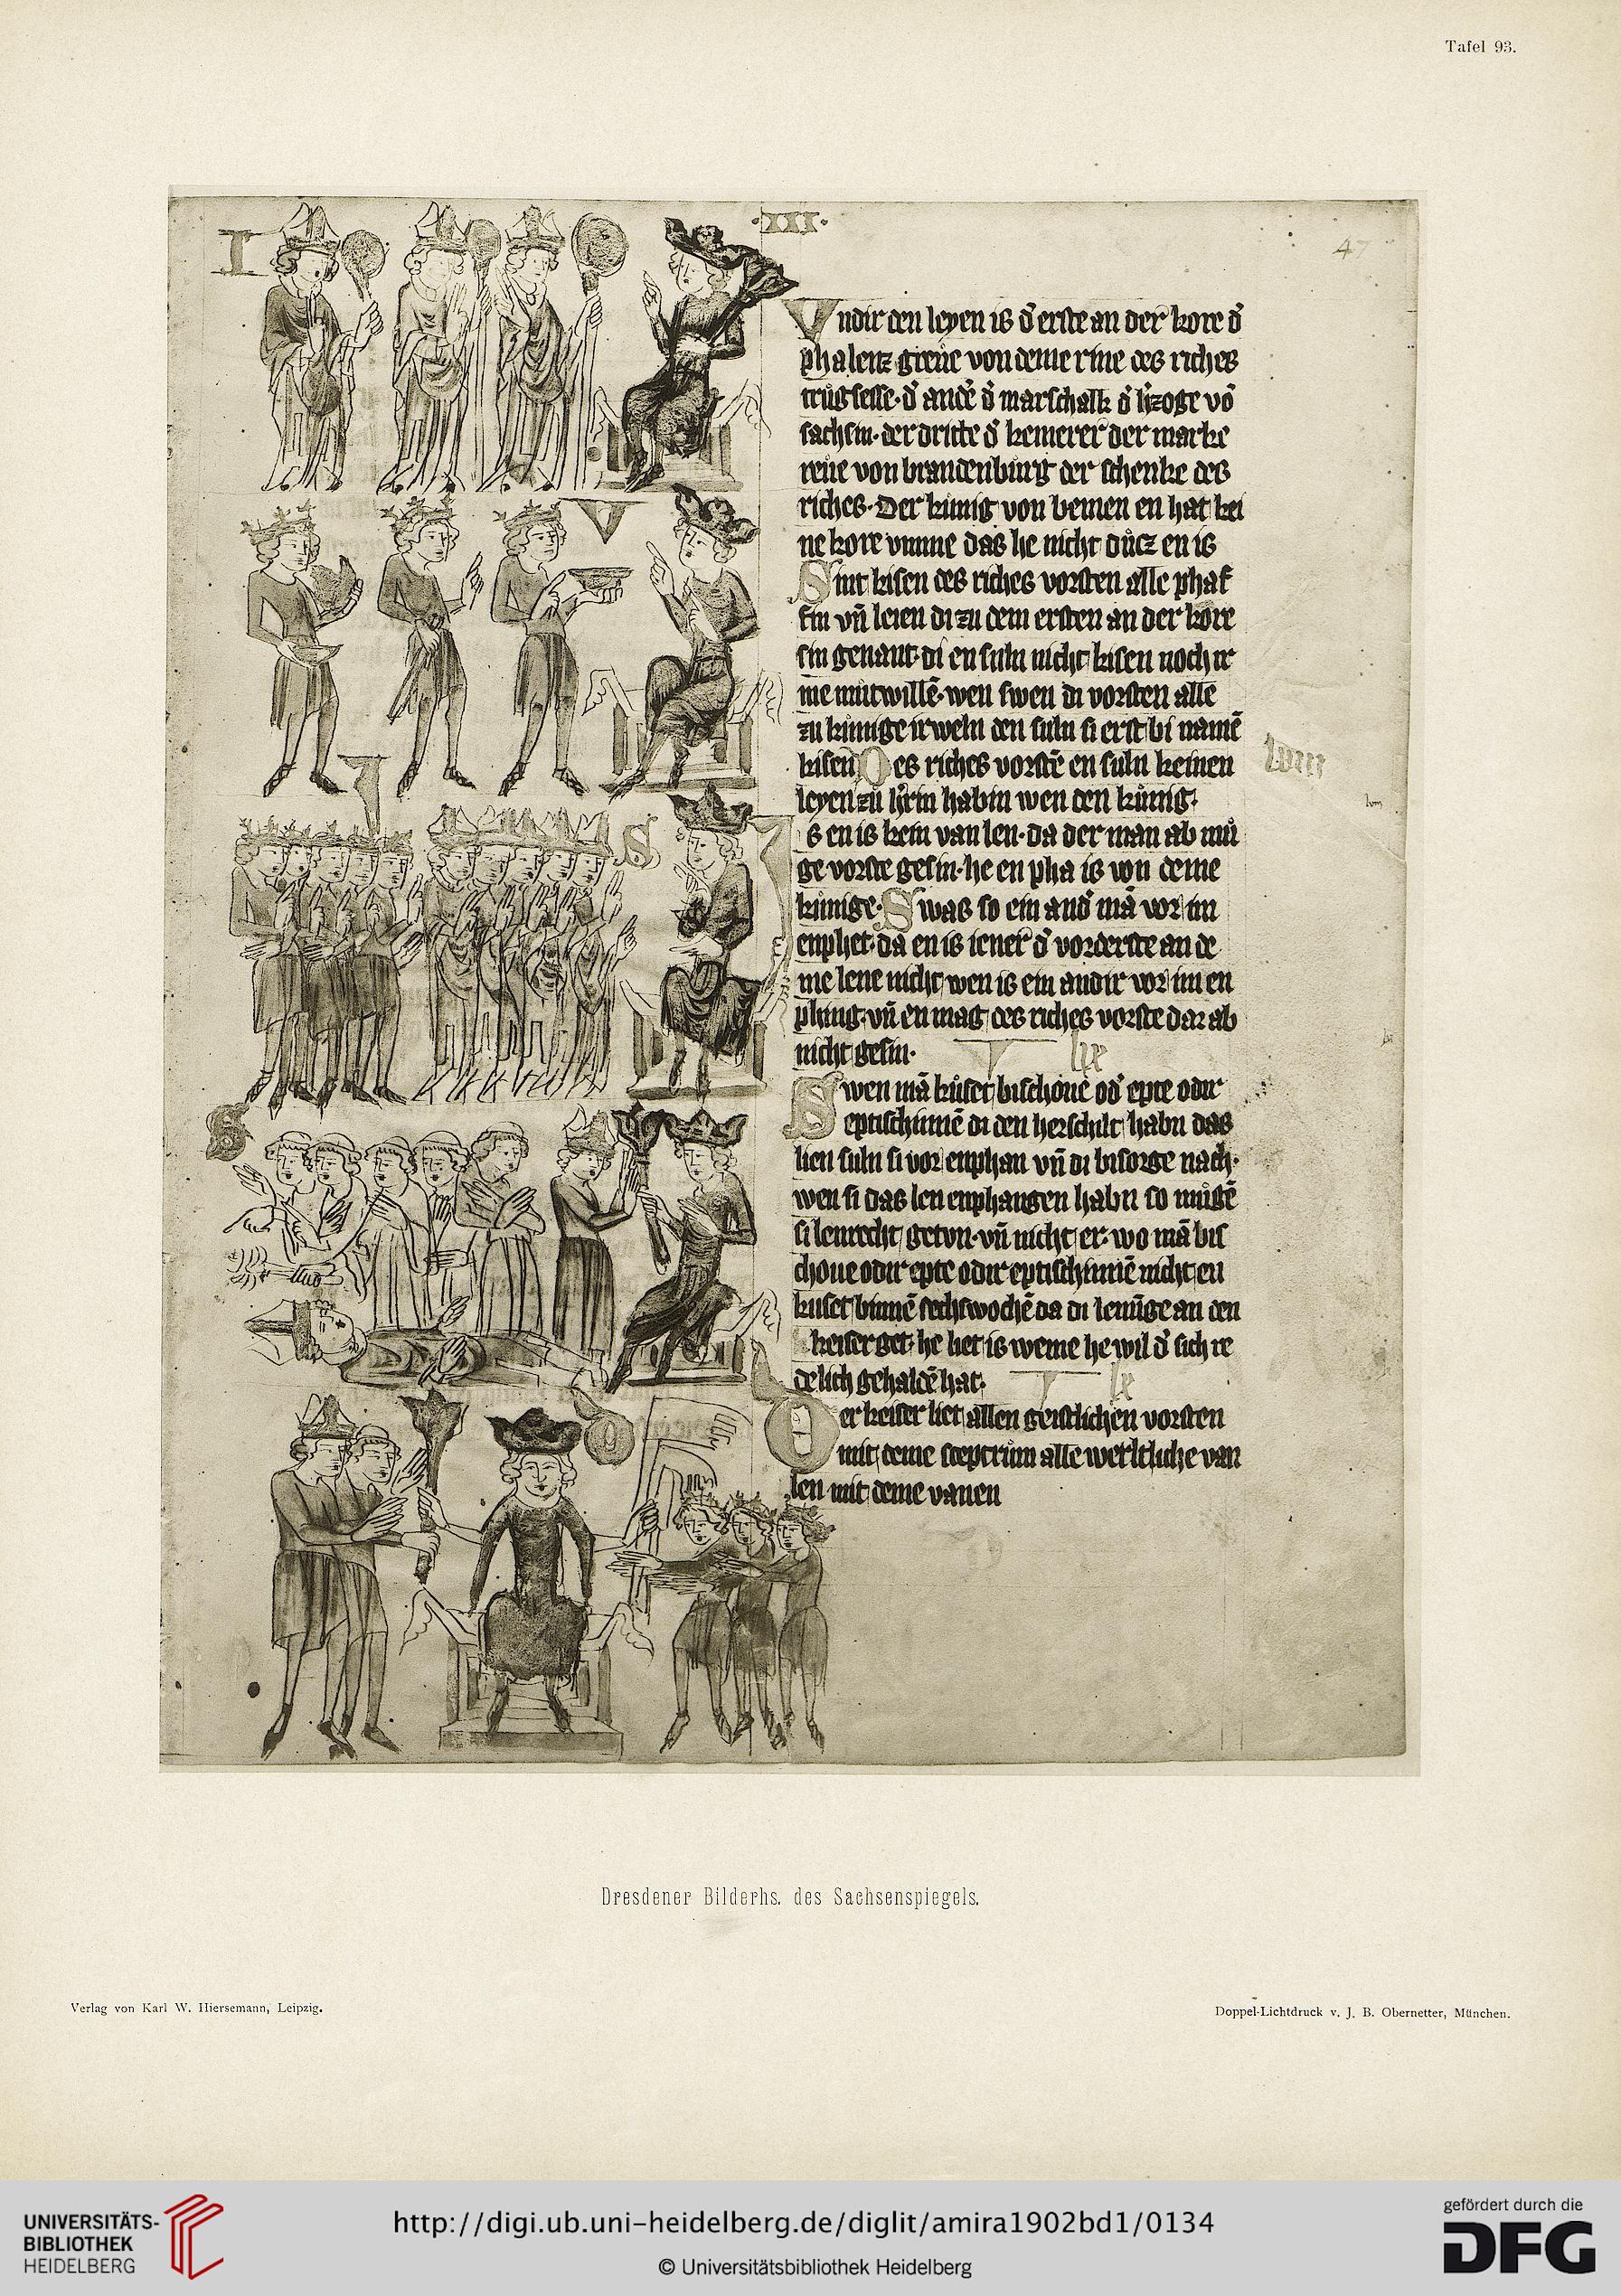 Tafel 93.
I
·III·
47
Vndir den leyen is d' erste an der kore d'
phalenz greue von deme rine des riches
trugsesse· d' andē d' marschalk d' h'zoge vō
sachsin· der dritte d' kemerer der marke
reue von brandenburg der schenke des
riches· Der kunig von bemen en hat kei
ne kore vmme das he nicht ducz en is
Sint kisen des riches vorsten alle phaf
fin vn̄ leien di zu dem ersten an der kore
sin genant· di en suln nicht kisen noch ir
me mutwillē· wen swen di vorsten alle
zu kunige irweln den suln si erst bi namē
kisen Des riches vorstē en suln keinen
lvm
leyen zu h'rin habin wen den kunig·
lvm
s en is kein van len· da der man ab mu
ge vorste gesin· he en pha is von deme
kunige· Swas so ein and' mā vor im
enphet· da en is iener d' vorderste an de
me lene nicht wen is ein andir vor im en
phing· vn̄ en mag des riches vorste dar ab
nicht gesin· lix
Swen mā kuset bischoue od' epte odir
eptischinnē di den herschilt habn das
lien suln si vor enphan vn̄ di bisorge nach·
wen si das len enphangen habn so mugē
si lenrecht getvn· vn̄ nicht er· wo mā bis
choue odir epte odir eptischinnē nicht en
kuset binnē sechs wochē da di lenūge an den
keiser get· he liet is weme he wil d' sich re
delich gehaldē hat· lx
Der keiser liet allen geistlichen vorsten
mit deme sceptrum alle werltliche van
len mit deme vanen
V
I
S
S
D
Dresdener Bilderhs. des Sachsenspiegels.
Verlag von Karl W. Hiersemann, Leipzig.
Doppel-Lichtdruck v. J. B. Obernetter, München.
UNIVERSITÄTS-
BIBLIOTHEK
HEIDELBERG
http://digi.ub.uni-heidelberg.de/diglit/amira1902bd1/0134
© Universitätsbibliothek Heidelberg
gefördert durch die
DFG